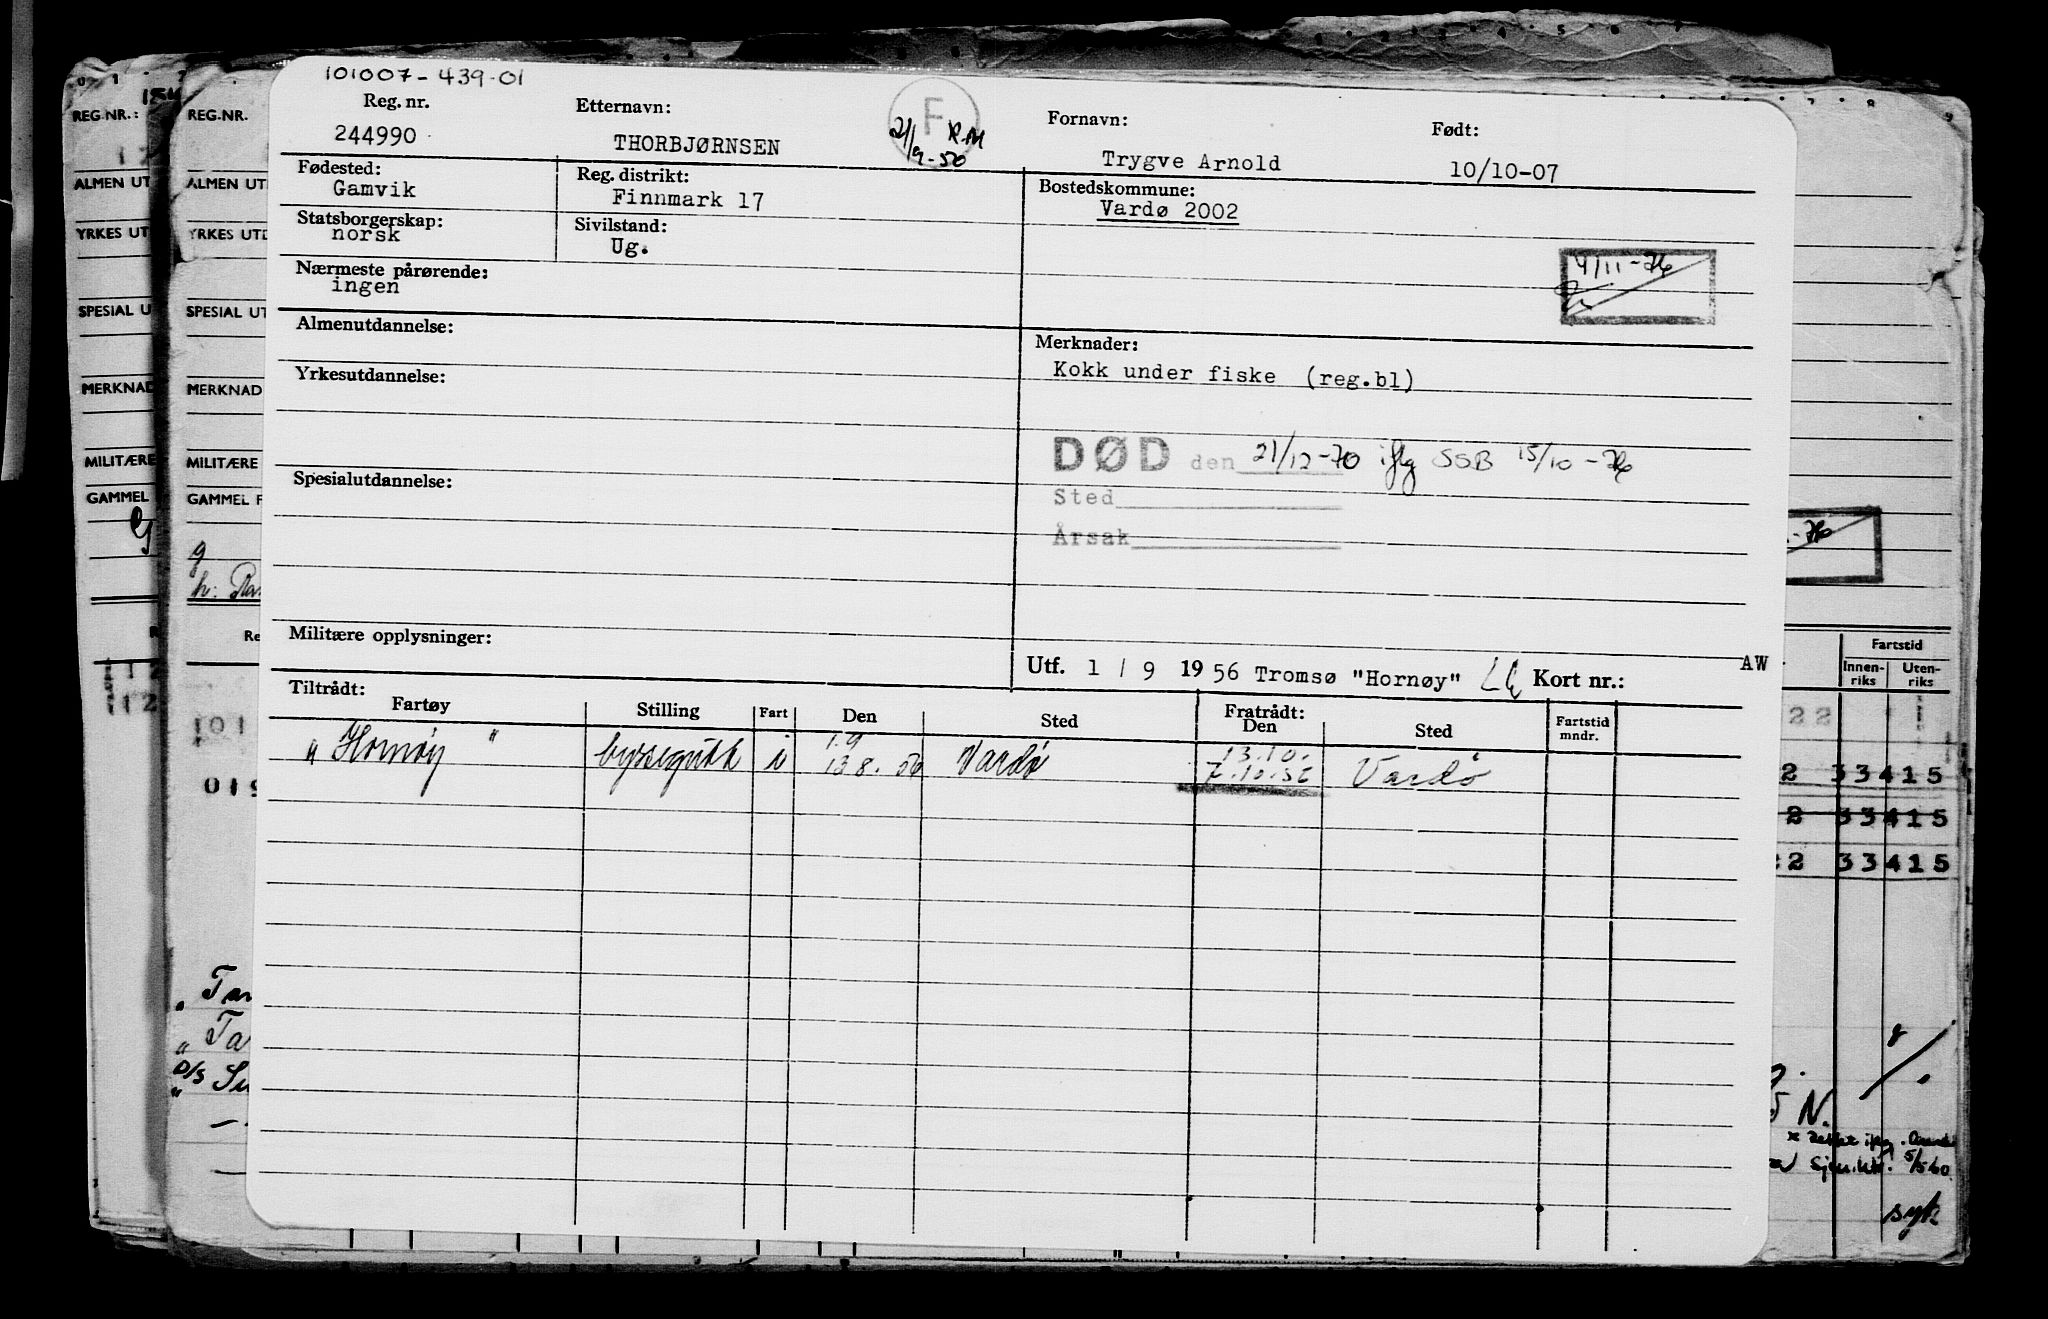 101007-439-01
Reg. nr. Etternavn: Fornavn: Født:
244990 THORBJØRNSEN Trygve Arnold 10/10-07
F
21/9-56 R.M
Fødested: Reg. distrikt: Bostedskommune:
Gamvik Finnmark 17 Vardø 2002
Statsborgerskap: Sivilstand:
norsk Ug.
Nærmeste pårørende:
ingen
4/11-76
Almenutdannelse: Merknader:
Kokk under fiske (reg.bl)
Yrkesutdannelse:
DØD den 21/12-70 iflg SSB 15/10-76
Spesialutdannelse: Sted
Årsak
Militære opplysninger:
Utf. 1 / 9 1956 Tromsø "Hornøy" Kort nr.: AW
Tiltrådt: Fratrådt:
Fartøy Stilling Fart Den Sted Den Sted Fartstid mndr.
1.9 13.10.
" Hornøy " byssegutt i 13.8.56 Vardø 7.10.56 Vardø
REG.NR.: REG.NR.
ALMEN UT ALMEN UTD
YRKES UT YRKES UTD
SPESIAL U SPESIAL UT
MERKNAD MERKNAD
MILITÆRE MILITÆRE
GAMMEL GAMMEL F
g
h:
Re
Fartstid
Innen-riks Uten-riks
112
112
101
019
22
2 33415
2 33415
22 33415
" Tar
" Ta
D/S Su
N.
syk